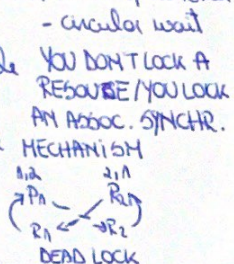 - circular wait
YOU DON'T LOCK A
RESOUCE/YOU LOCK
AN ASSOC. SYNCHR.
MECHANISM
1,2 2,1
P1 P2
R1 R2
DEAD LOCK